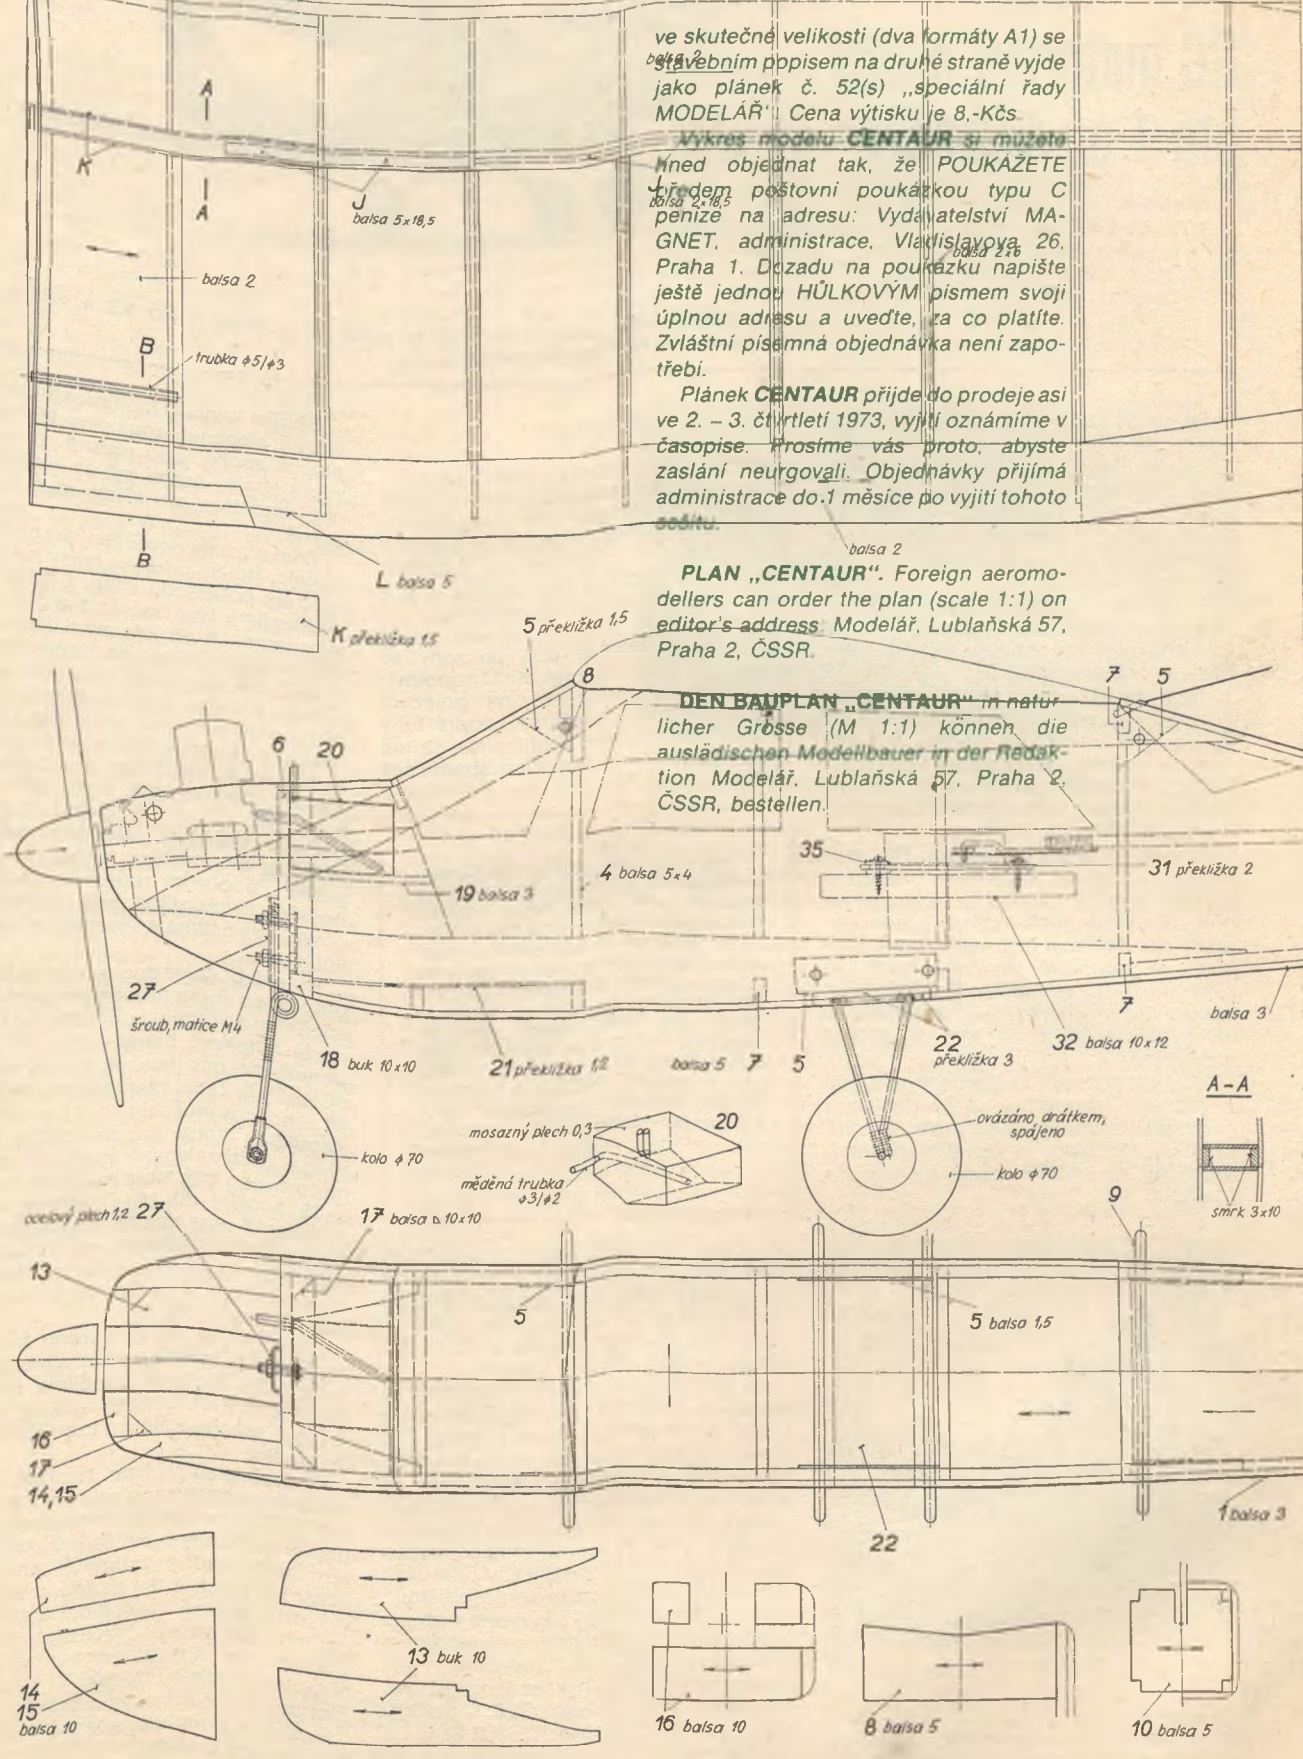 ve skutečné velikosti (dva formáty A1) se
stavebním popisem na druhé straně vyjde
jako plánek č. 52(s) „speciální řady
MODELÁŘ“. Cena výtisku je 8,-Kčs
Výkres modelu CENTAUR si můžete
hned objednat tak, že POUKÁŽETE
předem poštovní poukázkou typu C
peníze na adresu: Vydavatelství MA-
GNET, administrace, Vladislavova 26,
Praha 1. Dozadu na poukázku napište
ještě jednou HŮLKOVÝM písmem svoji
úplnou adresu a uveďte, za co platíte.
Zvláštní písemná objednávka není zapo-
třebí.
Plánek CENTAUR přijde do prodeje asi
ve 2. – 3. čtvrtletí 1973, vyjití oznámíme v
časopise. Prosíme vás proto, abyste
zaslání neurgovali. Objednávky přijímá
administrace do 1 měsíce po vyjití tohoto
sešitu.
PLAN „CENTAUR“. Foreign aeromo-
dellers can order the plan (scale 1:1) on
editor's address Modelář, Lublaňská 57,
Praha 2, ČSSR.
DEN BAUPLAN „CENTAUR“ in natür-
licher Grösse (M 1:1) können die
auslädischen Modellbauer in der Redak-
tion Modelář, Lublaňská 57, Praha 2,
ČSSR, bestellen.
balsa 2
A
K
A
J
balsa 5x18,5
J
balsa 2x18,5
balsa 2x6
balsa 2
B
trubka φ5/φ3
B
L balsa 5
balsa 2
K překližka 1,5
5 překližka 1,5
8
7
5
6
20
35
31 překližka 2
4 balsa 5x4
19 balsa 3
27
šroub, matice M4
18 buk 10x10
21 překližka 1,2
balsa 5
7
5
22
překližka 3
32 balsa 10x12
7
balsa 3
A-A
mosazný plech 0,3
20
ovázáno drátkem,
spájeno
kolo φ70
měděná trubka
φ3/φ2
kolo φ70
smrk 3x10
9
ocelový plech 1,2 27
17 balsa ⊿ 10x10
13
5
5 balsa 1,5
16
17
14,15
1 balsa 3
22
14
15
balsa 10
13 buk 10
16 balsa 10
8 balsa 5
10 balsa 5